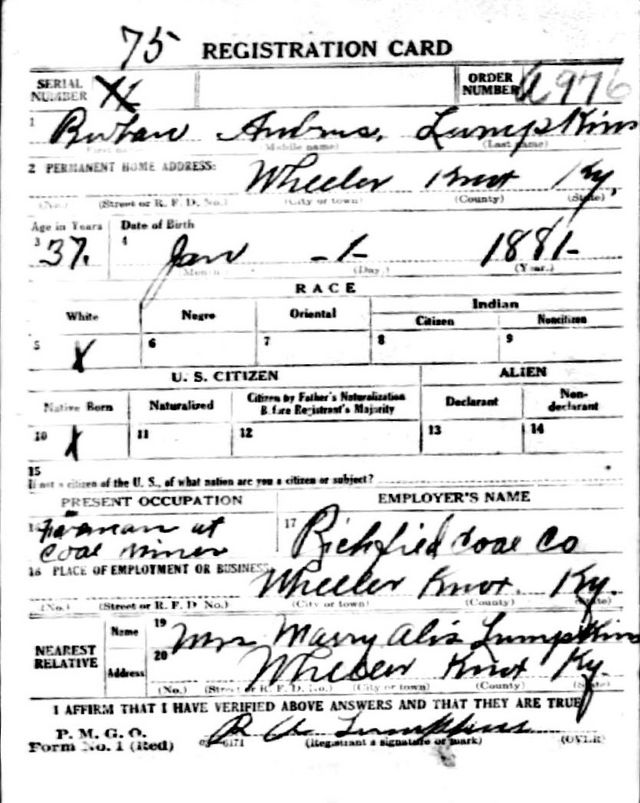 75 REGISTRATION CARD
SERIAL NUMBER ORDER NUMBER A976
1 Andrus, Lumpkins
(Middle name) (Last name)
2 PERMANENT HOME ADDRESS:
Wheeler Knox Ky,
(No.) (Street or R. F. D. No.) (City or town) (County) (State)
Age in Years Date of Birth
3 37. 4 Jan -1- 1881-
(Month) (Day) (Year.)
RACE
White Negro Oriental Indian
Citizen Noncitizen
5 X 6 7 8 9
U. S. CITIZEN ALIEN
Native Born Naturalized Citizen by Father's Naturalization Before Registrant's Majority Declarant Non-declarant
10 X 11 12 13 14
15
If not a citizen of the U. S., of what nation are you a citizen or subject?
PRESENT OCCUPATION EMPLOYER'S NAME
16 Forman at 17 Richfield Coal Co
Coal Miner
18 PLACE OF EMPLOYMENT OR BUSINESS:
Wheeler Knox. Ky.
(No.) (Street or R. F. D. No.) (City or town) (County) (State)
NEAREST RELATIVE
Name 19 Mrs Marry Alis Lumpkins
Address 20 Wheeler Knox Ky.
(No.) (Street or R. F. D. No.) (City or town) (County) (State)
I AFFIRM THAT I HAVE VERIFIED ABOVE ANSWERS AND THAT THEY ARE TRUE
P. M. G. O.
Form No. 1 (Red) R A Lumpkins
(Registrant's signature or mark) (OVER)